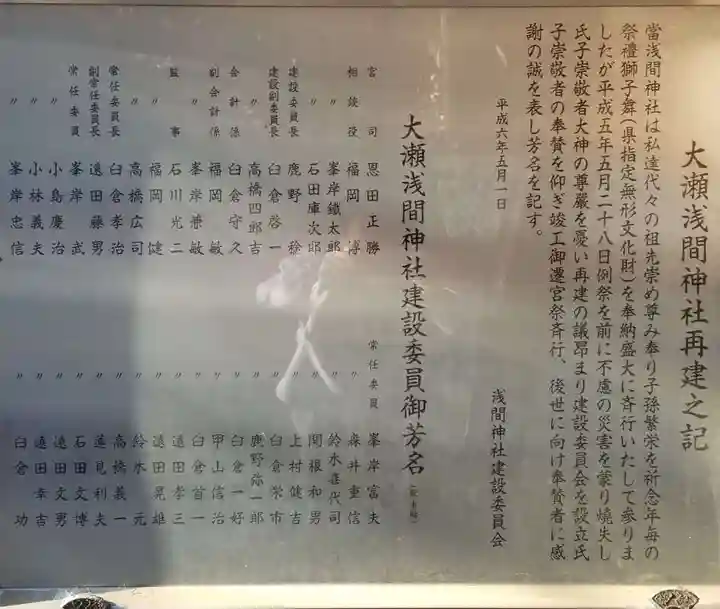 大瀬浅間神社再建之記
當浅間神社は私達代々の祖先崇め尊み奉り子孫繁栄を祈念年毎の
祭禮獅子舞(県指定無形文化財)を奉納盛大に斉行いたして参りま
したが平成五年五月二十八日例祭を前に不慮の災害を蒙り焼失し
氏子崇敬者大神の尊厳を憂い再建の議昂まり建設委員会を設立氏
子崇敬者の奉賛を仰ぎ竣工御遷宮祭斉行、後世に向け奉賛者に感
謝の誠を表し芳名を記す。
平成六年五月一日
浅間神社建設委員会
大瀬浅間神社建設委員御芳名
宮司 恩田正勝
相談役 福岡博
〃 峯岸鐵太郎
〃 石田庫次郎
建設委員長 鹿野稔
建設副委員長 臼倉啓一
〃 高橋四郎吉
会計係 臼倉守久
副会計係 福岡敏
〃 峯岸兼敏
監事 石川光二
〃 福岡健
〃 高橋広司
常任委員長 臼倉孝治
副常任委員長 遠田藤男
〃 峯岸武
常任委員 小島慶治
〃 小林義夫
〃 峯岸忠信
常任委員 峯岸富夫
〃 森井重信
〃 鈴木喜代司
〃 関根和男
〃 上村健吉
〃 臼倉栄市
〃 鹿野弥一郎
〃 臼倉一好
〃 甲山信治
〃 臼倉首一
〃 遠田孝三
〃 遠田晃雄
〃 鈴木元
〃 高橋義一
〃 蓮見利夫
〃 石田文博
〃 遠田文男
〃 遠田幸吉
〃 臼倉功